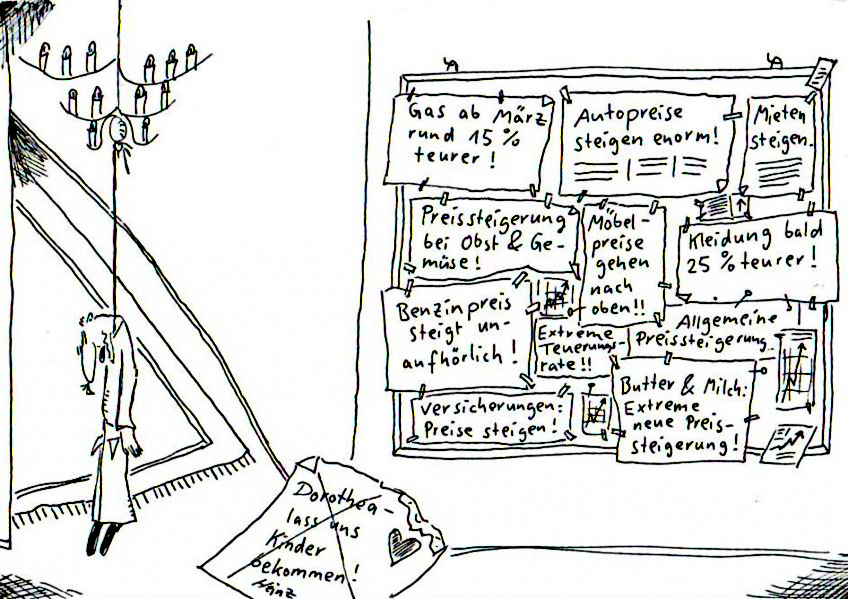 Gas ab März
rund 15%
teurer!
Autopreise
steigen enorm!
Mieten
steigen.
Preissteigerung
bei Obst & Ge-
müse!
Möbel-
preise
gehen
nach
oben!!
Kleidung bald
25% teurer!
Benzinpreis
steigt un-
aufhörlich!
Extreme
Teuerungs-
rate!!
Allgemeine
Preissteigerung..
Versicherungen:
Preise steigen!
Butter & Milch:
Extreme
neue Preis-
steigerung!
Dorothea-
lass uns
Kinder
bekommen!
Heinz